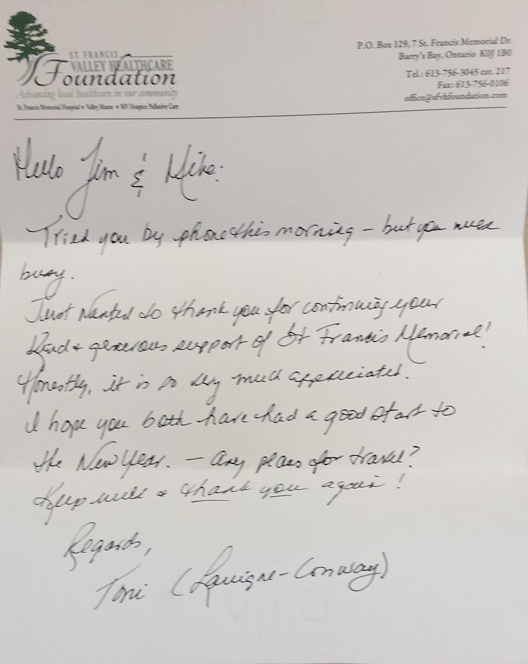 ST. FRANCIS
VALLEY HEALTHCARE
Foundation
Advancing local healthcare in our community
St. Francis Memorial Hospital • Valley Manor • MV Hospice Palliative Care
P.O. Box 129, 7 St. Francis Memorial Dr.
Barry's Bay, Ontario K0J 1B0
Tel.: 613-756-3045 ext. 217
Fax: 613-756-0106
office@sfvhfoundation.com
Hello Jim & Mike:
Tried you by phone this morning – but you were
busy.
Just wanted to thank you for continuing your
kind & generous support of St Francis Memorial!
Honestly, it is so very much appreciated.
I hope you both have had a good start to
the New Year. – Any plans for travel?
Keep well & thank you again!
Regards,
Toni (Lavigne-Conway)